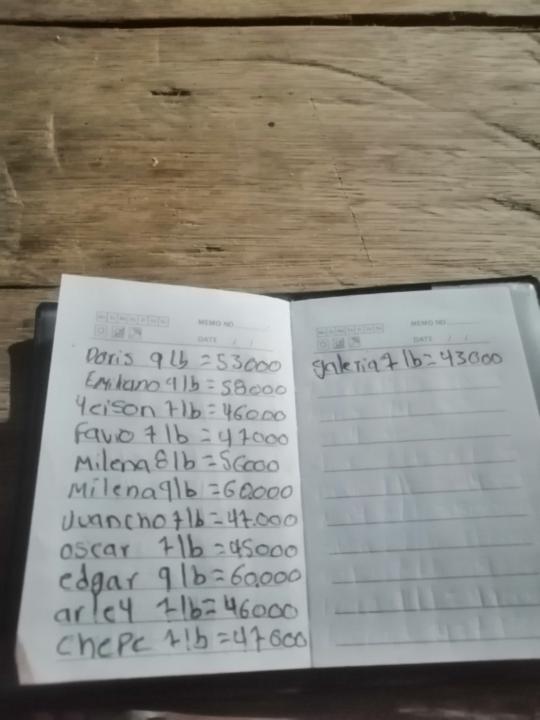 MEMO NO.
DATE / /
Doris 9 lb = 53000
Emiliano 9 lb = 58000
Yeison 7 lb = 46000
Favio 7 lb = 47000
Milena 8 lb = 56000
Milena 9 lb = 60.000
Juancho 7 lb = 47.000
oscar 7 lb = 45000
edgar 9 lb = 60.000
arley 7 lb = 46000
chepe 7 lb = 47000
MEMO NO.
DATE / /
galeria 7 lb = 43000